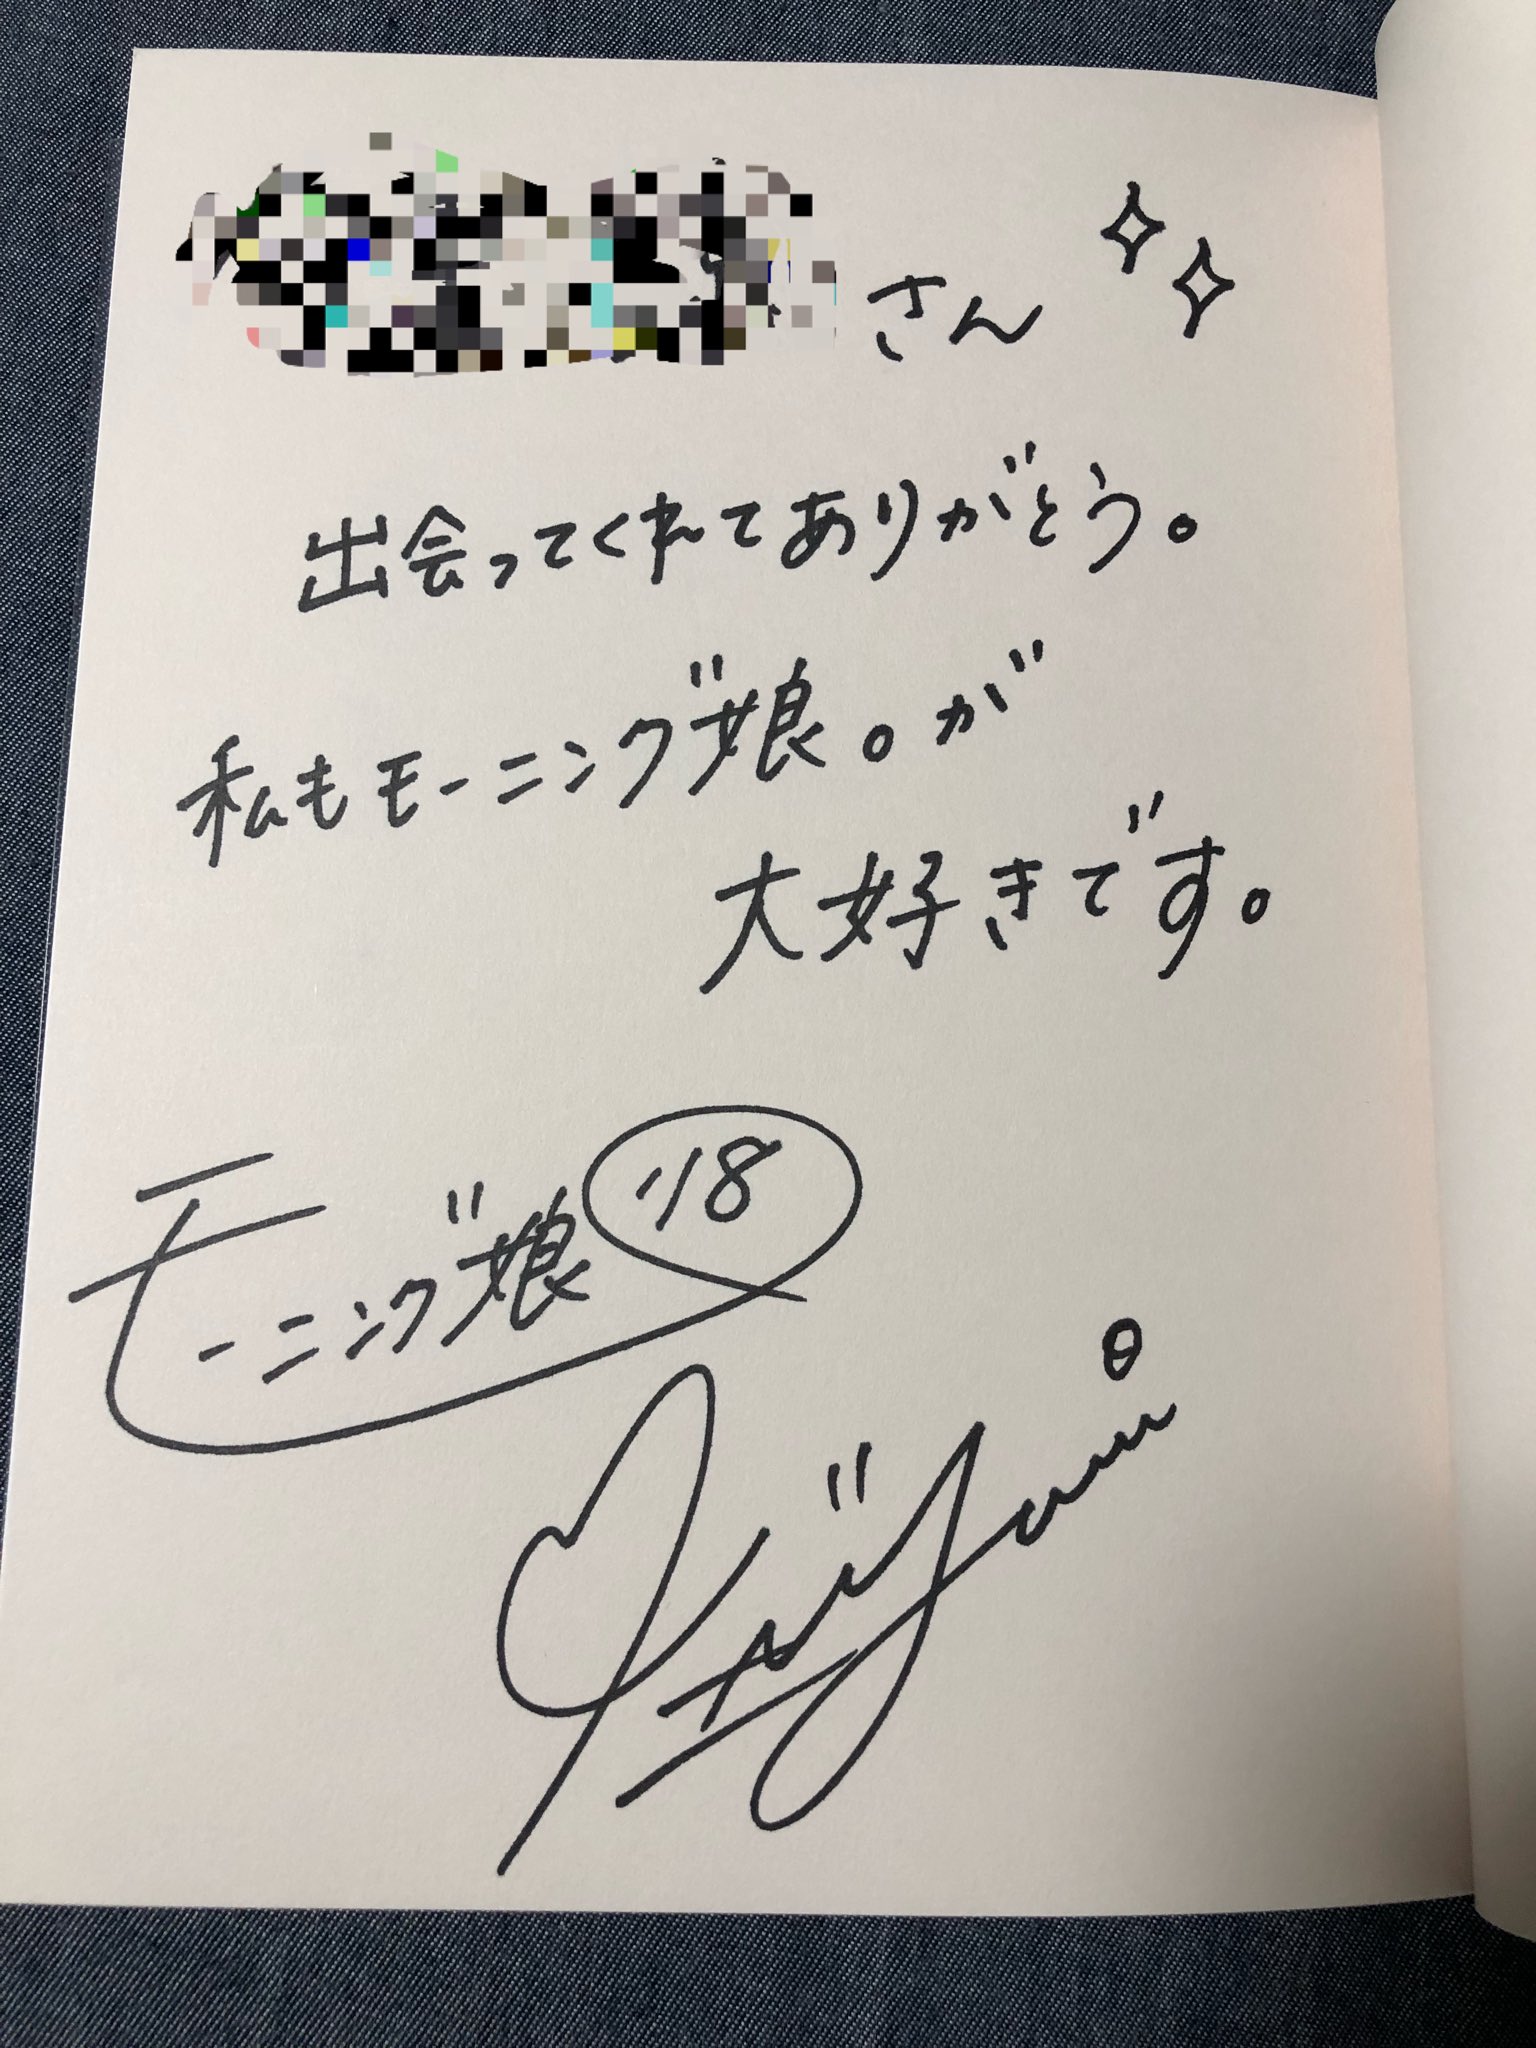 さん
出会ってくれてありがとう。
私もモーニング娘。が
大好きです。
モーニング娘'18